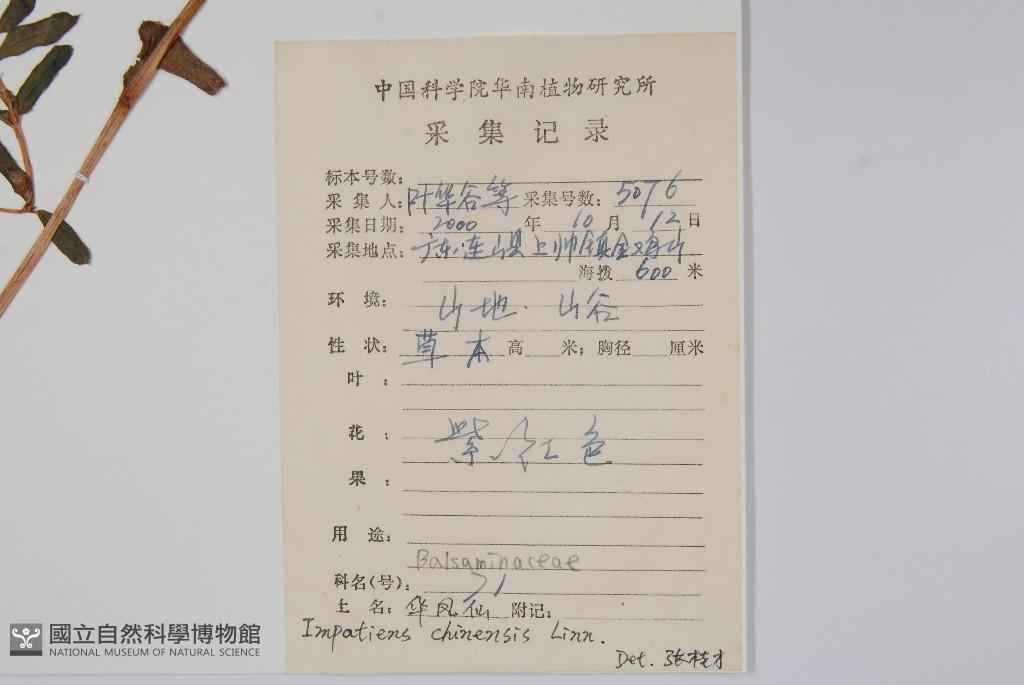 中国科学院华南植物研究所
采集记录
标本号数:
采集人: 叶华谷等 采集号数: 5076
采集日期: 2000 年 10 月 12 日
采集地点: 广东·连山县上帅镇金鸡山
海拨 600 米
环境: 山地·山谷
性状: 草本 高 米; 胸径 厘米
叶:
花: 紫红色
果:
用途:
Balsaminaceae
科名(号): 71
土名: 华凤仙 附记:
Impatiens chinensis Linn.
Det. 张桂才
國立自然科學博物館
NATIONAL MUSEUM OF NATURAL SCIENCE